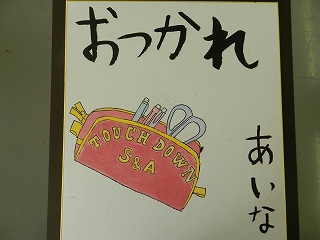 おつかれ
TOUCHDOWN
S&A
あいな